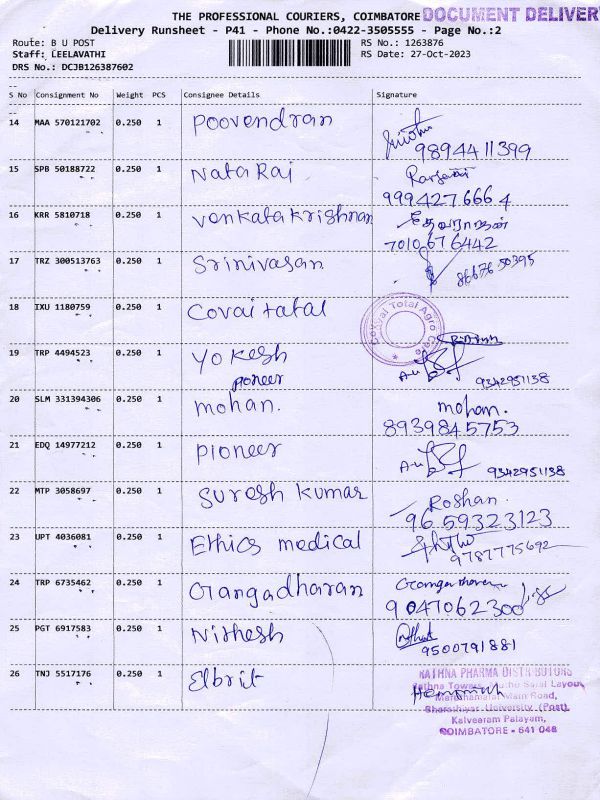 THE PROFESSIONAL COURIERS, COIMBATORE
DOCUMENT DELIVER
Delivery Runsheet - P41 - Phone No.:0422-3505555 - Page No.:2
Route: B U POST
RS No.: 1263876
Staff: LEELAVATHI
RS Date: 27-Oct-2023
DRS No.: DCJB126387602
S No Consignment No Weight PCS Consignee Details Signature
14 MAA 570121702 0.250 1 Poovendran
9894411399
15 SPB 50188722 0.250 1 Nata Raj
9994276664
16 KRR 5810718 0.250 1 Venkatakrishnan தேவராஜன்
7010676442
17 TRZ 300513763 0.250 1 Srinivasan 8667650395
18 IXU 1180759 0.250 1 Covai total
Covai Total Agro Care
19 TRP 4494523 0.250 1 Yokesh
pioneer 9342951138
20 SLM 331394306 0.250 1 mohan. mohan.
8939845753
21 EDQ 14977212 0.250 1 pioneer 9342951138
22 MTP 3058697 0.250 1 Suresh kumar Roshan.
9659323123
23 UPT 4036081 0.250 1 Ethics medical
9787775692
24 TRP 6735462 0.250 1 Gangadharan Gangadharan
9047062300
25 PGT 6917583 0.250 1 Nithesh
9500791881
26 TNJ 5517176 0.250 1 Elbrit
RATHNA PHARMA DISTRIBUTORS
Rathna Towers, Layout,
Main Road,
Bharathiyar University (Post),
Kalveeram Palayam,
COIMBATORE - 641 046